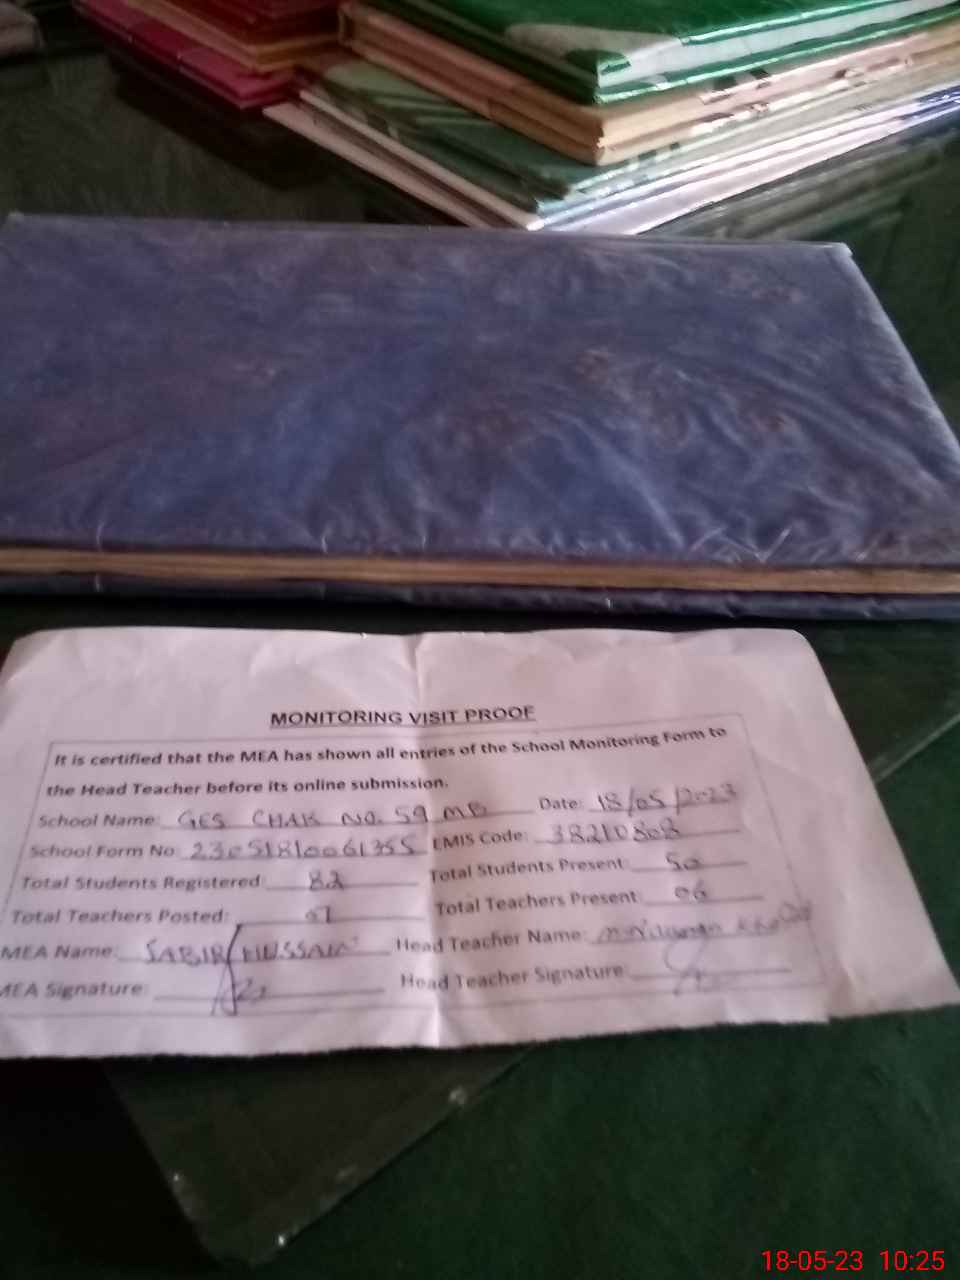 MONITORING VISIT PROOF
It is certified that the MEA has shown all entries of the School Monitoring Form to
the Head Teacher before its online submission.
School Name: GES CHAK NO. 59 MB Date: 18/05/2023
School Form No: 23051810061355 EMIS Code: 38210808
Total Students Registered: 82 Total Students Present: 50
Total Teachers Posted: 07 Total Teachers Present: 06
MEA Name: SABIR HUSSAIN Head Teacher Name:
MEA Signature: Head Teacher Signature:
18-05-23 10:25